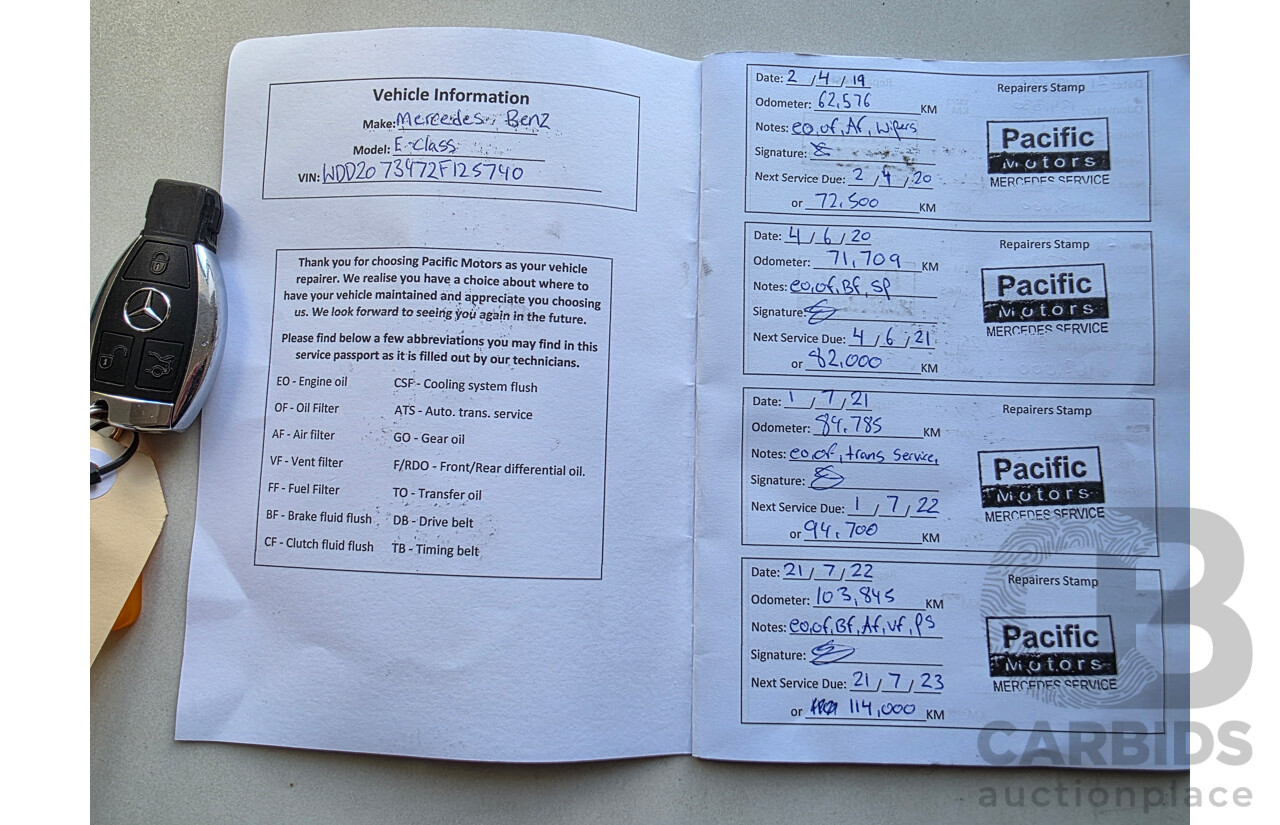 Vehicle Information
Make: Mercedes Benz
Model: E-Class
VIN: WDD2073472F125740
Thank you for choosing Pacific Motors as your vehicle
repairer. We realise you have a choice about where to
have your vehicle maintained and appreciate you choosing
us. We look forward to seeing you again in the future.
Please find below a few abbreviations you may find in this
service passport as it is filled out by our technicians.
EO - Engine oil CSF - Cooling system flush
OF - Oil Filter ATS - Auto. trans. service
AF - Air filter GO - Gear oil
VF - Vent filter F/RDO - Front/Rear differential oil.
FF - Fuel Filter TO - Transfer oil
BF - Brake fluid flush DB - Drive belt
CF - Clutch fluid flush TB - Timing belt
Date: 2/4/19 Repairers Stamp
Odometer: 62,576 KM
Notes: eo,of, Af, wipers
Signature:
Next Service Due: 2/4/20
or 72,500 KM
Pacific
Motors
MERCEDES SERVICE
Date: 4/6/20 Repairers Stamp
Odometer: 71,709 KM
Notes: eo,of,Bf,SP
Signature:
Next Service Due: 4/6/21
or 82,000 KM
Pacific
Motors
MERCEDES SERVICE
Date: 1/7/21 Repairers Stamp
Odometer: 84,785 KM
Notes: eo,of, trans Service,
Signature:
Next Service Due: 1/7/22
or 94,700 KM
Pacific
Motors
MERCEDES SERVICE
Date: 21/7/22 Repairers Stamp
Odometer: 103,845 KM
Notes: eo,of,Bf,Af,vf,PS
Signature:
Next Service Due: 21/7/23
or 114,000 KM
Pacific
Motors
MERCEDES SERVICE
CB
CARBIDS
auctionplace